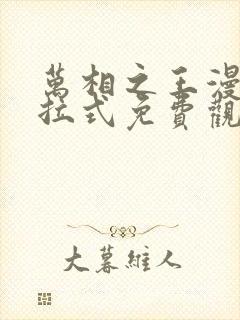 萬相之王漫
拉式免費觀
大暮維人